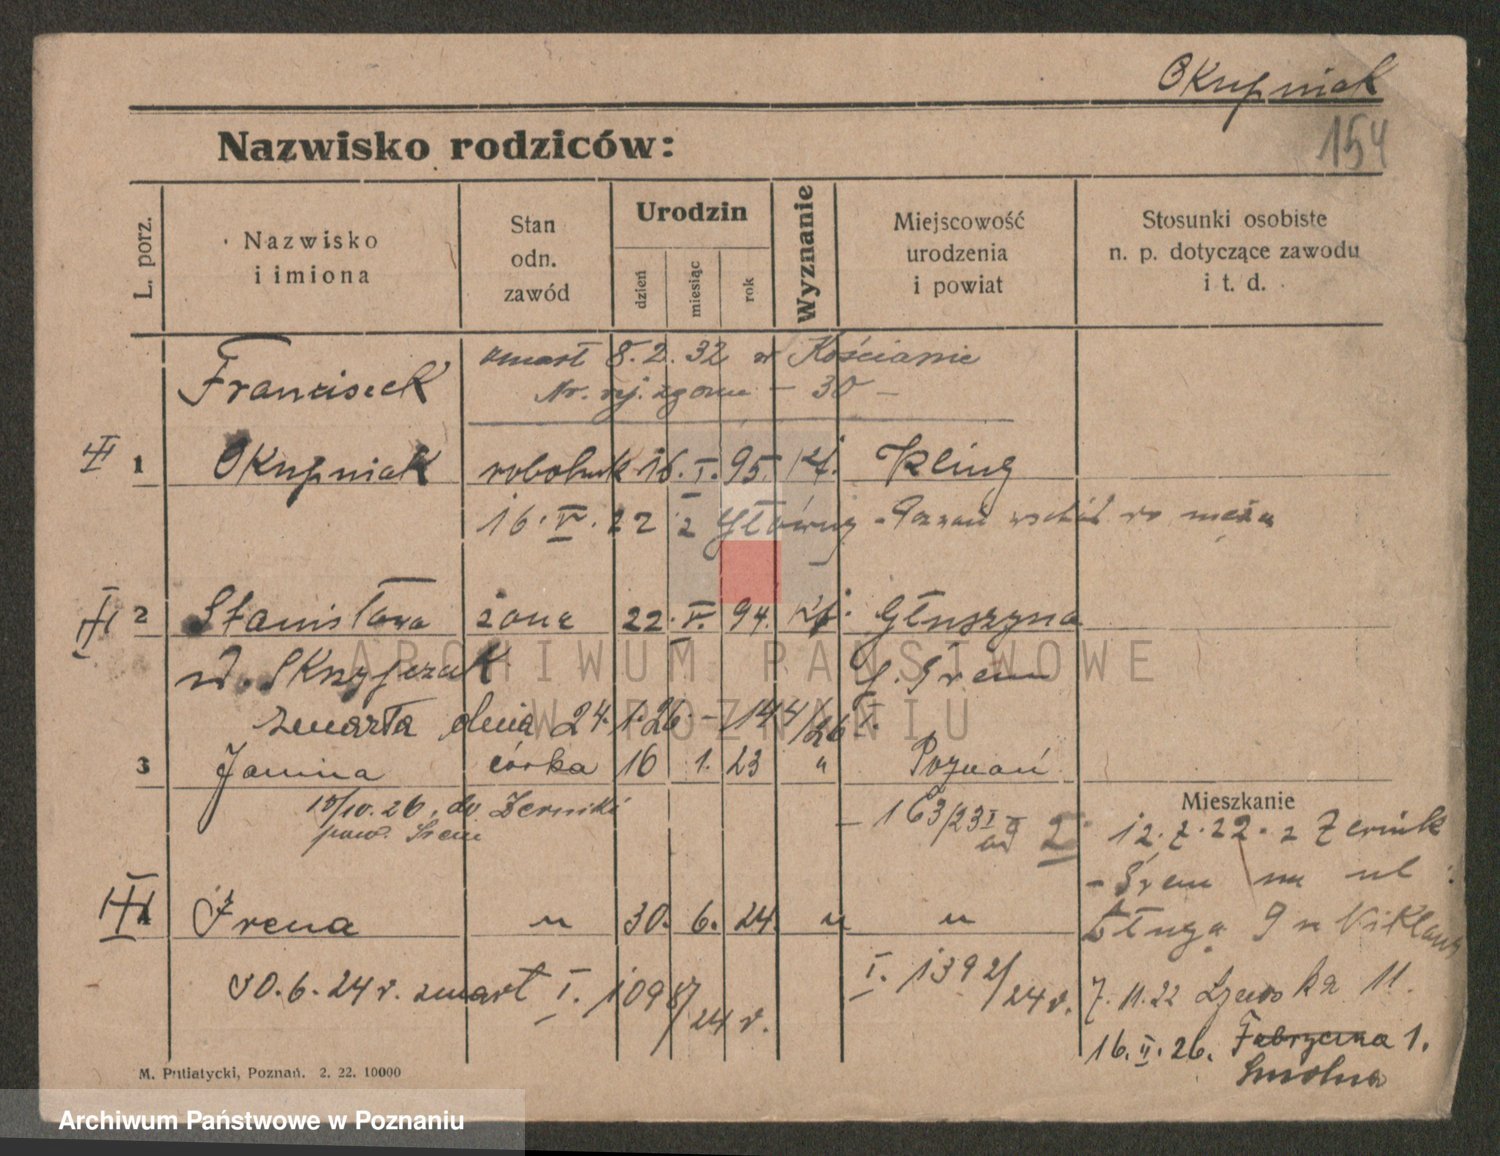 Okupniak
154
Nazwisko rodziców:
L. porz.
Nazwisko i imiona
Stan odn. zawód
Urodzin
dzień
miesiąc
rok
Wyznanie
Miejscowość urodzenia i powiat
Stosunki osobiste n. p. dotyczące zawodu i t. d.
Franciszek zmarł 8.2.32 w Kościanie
Nr. rej. zgonu - 30 -
III 1 Okupniak robotnik 16. I. 95. kt.
16. V. 22 z Główny - Poznań do męża
III 2 Stanisława żona 22. V. 94. kt. Głuszyna
p. Śrem
zmarła dnia 24.1.26. - 144/26 I.
3 Janina córka 16 1. 23 " Poznań
Mieszkanie
15/10.26. do Żerniki - 163/23 I
pow. Śrem
12.7.22. z Żernik
- Śrem na ul.
III 4 Irena " 30. 6. 24. " "
Długa 9
30.6.24 r. zmarł I. 1098/24 r. I. 1392/24 r.
7.11.22 11.
16.II.26. Fabryczna 1.
Smolna
M. Putiatycki, Poznań. 2. 22. 10000
ARCHIWUM PAŃSTWOWE
W POZNANIU
Archiwum Państwowe w Poznaniu